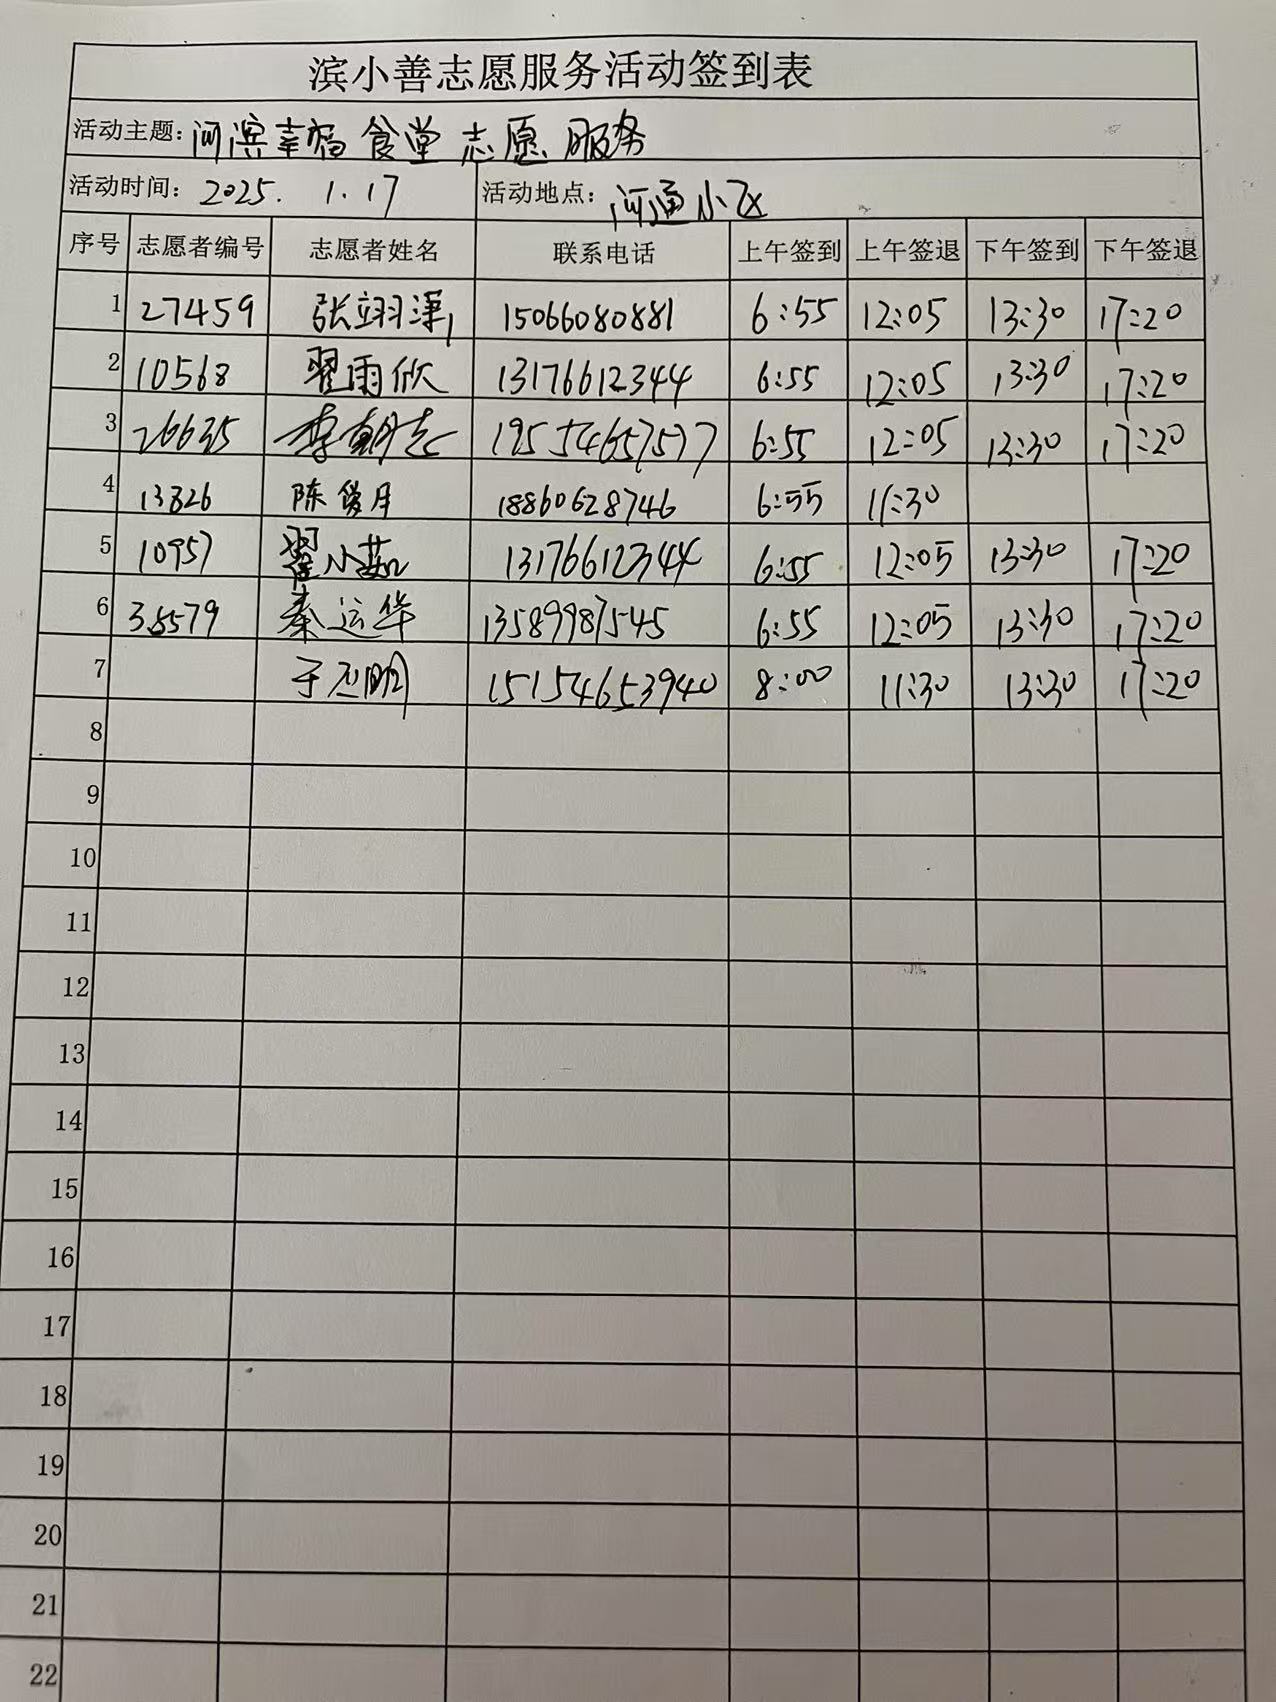 滨小善志愿服务活动签到表
活动主题: 河滨幸福食堂志愿服务
活动时间: 2025. 1.17 活动地点: 河通小区
序号 志愿者编号 志愿者姓名 联系电话 上午签到 上午签退 下午签到 下午签退
1 27459 张翊 15066080881 6:55 12:05 13:30 17:20
2 10568 翟雨欣 13176612344 6:55 12:05 13:30 17:20
3 26635 李朝志 19554657577 6:55 12:05 13:30 17:20
4 13826 陈俊月 18860628746 6:55 11:30
5 10957 翟小茹 13176612344 6:55 12:05 13:30 17:20
6 38579 秦运华 13589987545 6:55 12:05 13:30 17:20
7 于 明 15154653940 8:00 11:30 13:30 17:20
8
9
10
11
12
13
14
15
16
17
18
19
20
21
22